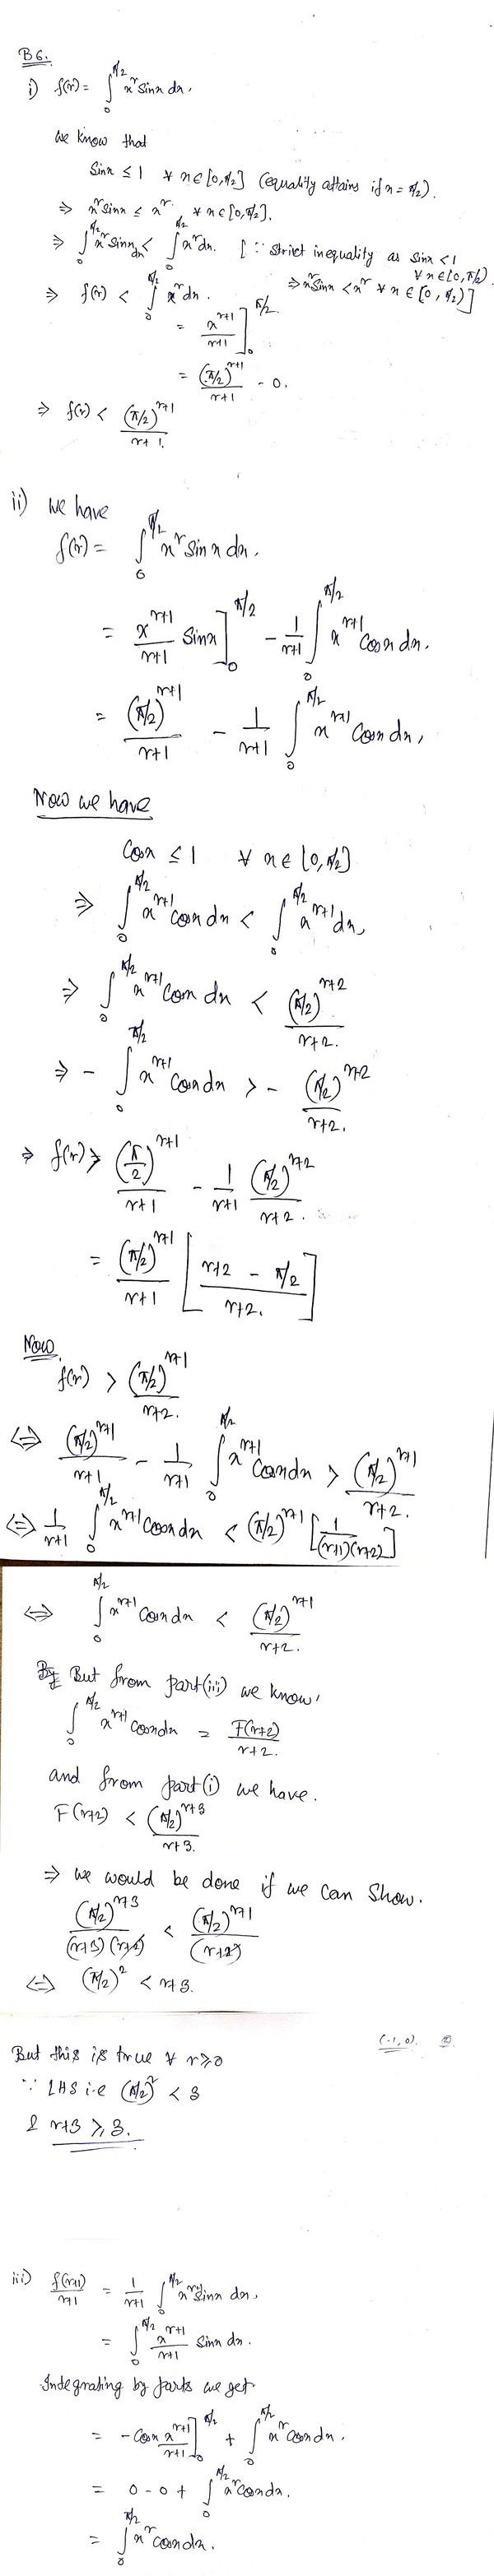 B6.
i) f(r) = ∫₀^{π/2} x^r sinx dx.
We know that
Sinx ≤ 1 ∀ x∈[0,π/2] (equality attains if x = π/2).
⇒ x^r sinx ≤ x^r ∀ x∈[0,π/2].
⇒ ∫₀^{π/2} x^r sinx dx < ∫₀^{π/2} x^r dx. [∵ Strict inequality as sinx < 1 ∀ x∈[0,π/2)
⇒ x^r sinx < x^r ∀ x∈[0,π/2)]
⇒ f(r) < ∫₀^{π/2} x^r dx.
= x^{r+1}/(r+1) ]₀^{π/2}
= (π/2)^{r+1}/(r+1) - 0.
⇒ f(r) < (π/2)^{r+1}/(r+1).
ii) We have
f(r) = ∫₀^{π/2} x^r sinx dx.
= x^{r+1}/(r+1) sinx ]₀^{π/2} - 1/(r+1) ∫₀^{π/2} x^{r+1} cosx dx.
= (π/2)^{r+1}/(r+1) - 1/(r+1) ∫₀^{π/2} x^{r+1} cosx dx,
Now we have
Cosx ≤ 1 ∀ x∈[0,π/2]
⇒ ∫₀^{π/2} x^{r+1} cosx dx < ∫₀^{π/2} x^{r+1} dx,
⇒ ∫₀^{π/2} x^{r+1} cosx dx < (π/2)^{r+2}/(r+2).
⇒ - ∫₀^{π/2} x^{r+1} cosx dx > - (π/2)^{r+2}/(r+2).
⇒ f(r) > (π/2)^{r+1}/(r+1) - 1/(r+1) (π/2)^{r+2}/(r+2).
= (π/2)^{r+1}/(r+1) [ (r+2 - π/2)/(r+2) ]
Now
f(r) > (π/2)^{r+1}/(r+2).
⇔ (π/2)^{r+1}/(r+1) - 1/(r+1) ∫₀^{π/2} x^{r+1} cosx dx > (π/2)^{r+1}/(r+2).
⇔ 1/(r+1) ∫₀^{π/2} x^{r+1} cosx dx < (π/2)^{r+1} [ 1/((r+1)(r+2)) ]
⇔ ∫₀^{π/2} x^{r+1} cosx dx < (π/2)^{r+1}/(r+2).
But from part(iii) we know,
∫₀^{π/2} x^{r+1} cosx dx = F(r+2)/(r+2).
and from part(i) we have.
F(r+2) < (π/2)^{r+3}/(r+3).
⇒ we would be done if we can show.
(π/2)^{r+3}/((r+3)(r+2)) < (π/2)^{r+1}/(r+2)
⇔ (π/2)² < r+3.
(-1, 0).
But this is true ∀ r≥0
∵ LHS i.e (π/2)² < 3
& r+3 ≥ 3.
iii) f(r+1)/(r+1) = 1/(r+1) ∫₀^{π/2} x^{r+1} sinx dx,
= ∫₀^{π/2} x^{r+1}/(r+1) sinx dx.
Integrating by parts we get
= -Cosx x^{r+1}/(r+1) ]₀^{π/2} + ∫₀^{π/2} x^r cosx dx.
= 0 - 0 + ∫₀^{π/2} x^r cosx dx.
= ∫₀^{π/2} x^r cosx dx.